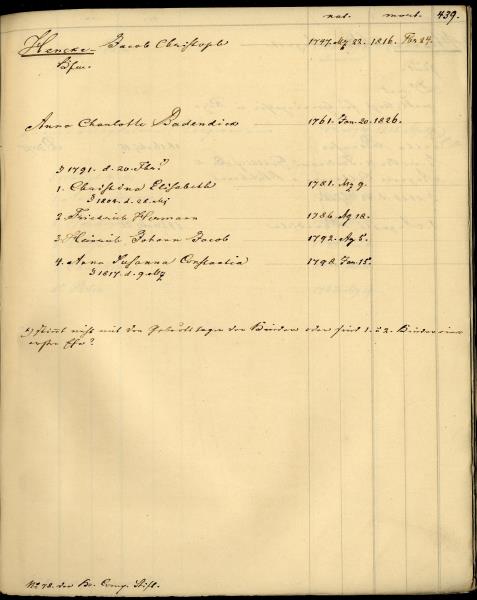 nat. mort. 439.
Hencke. Jacob Christoph 1747. Mz 22. 1816. Fbr 24.
Bfm.
Anna Charlotte Badendieck 1761. Jan. 20. 1826.
1791. d. 20. Fbr.?
1. Christina Elisabeth 1781. Mz 9.
1804. d. 28. Mj
2. Friedrich Hermann 1786. Ag 18.
3. Heinrich Johann Jacob 1792. Ag 5.
4. Anna Susanna Constantia 1798. Jan. 15.
1817. d. 9. Mz
?) stimmt nicht mit den Geburtstagen der Kinder oder sind 1. u 2. Kinder einer
ersten Ehe?
No 78. der Br. Comp. Stift.